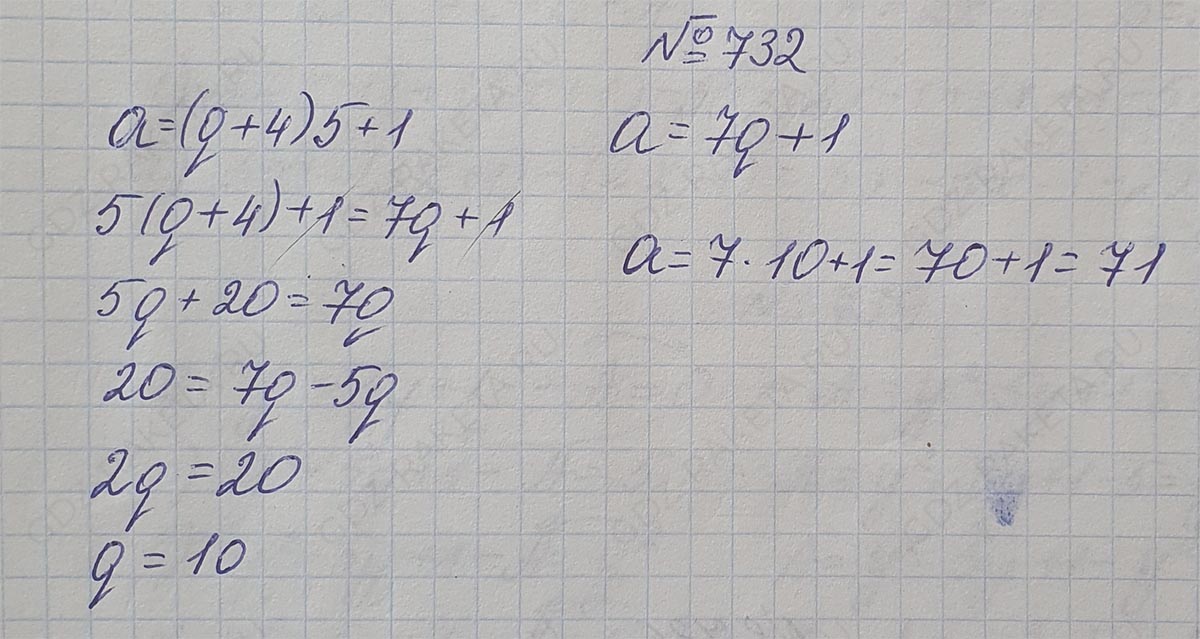 № 732
a = (q + 4) 5 + 1
a = 7q + 1
5 (q + 4) + 1 = 7q + 1
a = 7 · 10 + 1 = 70 + 1 = 71
5q + 20 = 7q
20 = 7q - 5q
2q = 20
q = 10